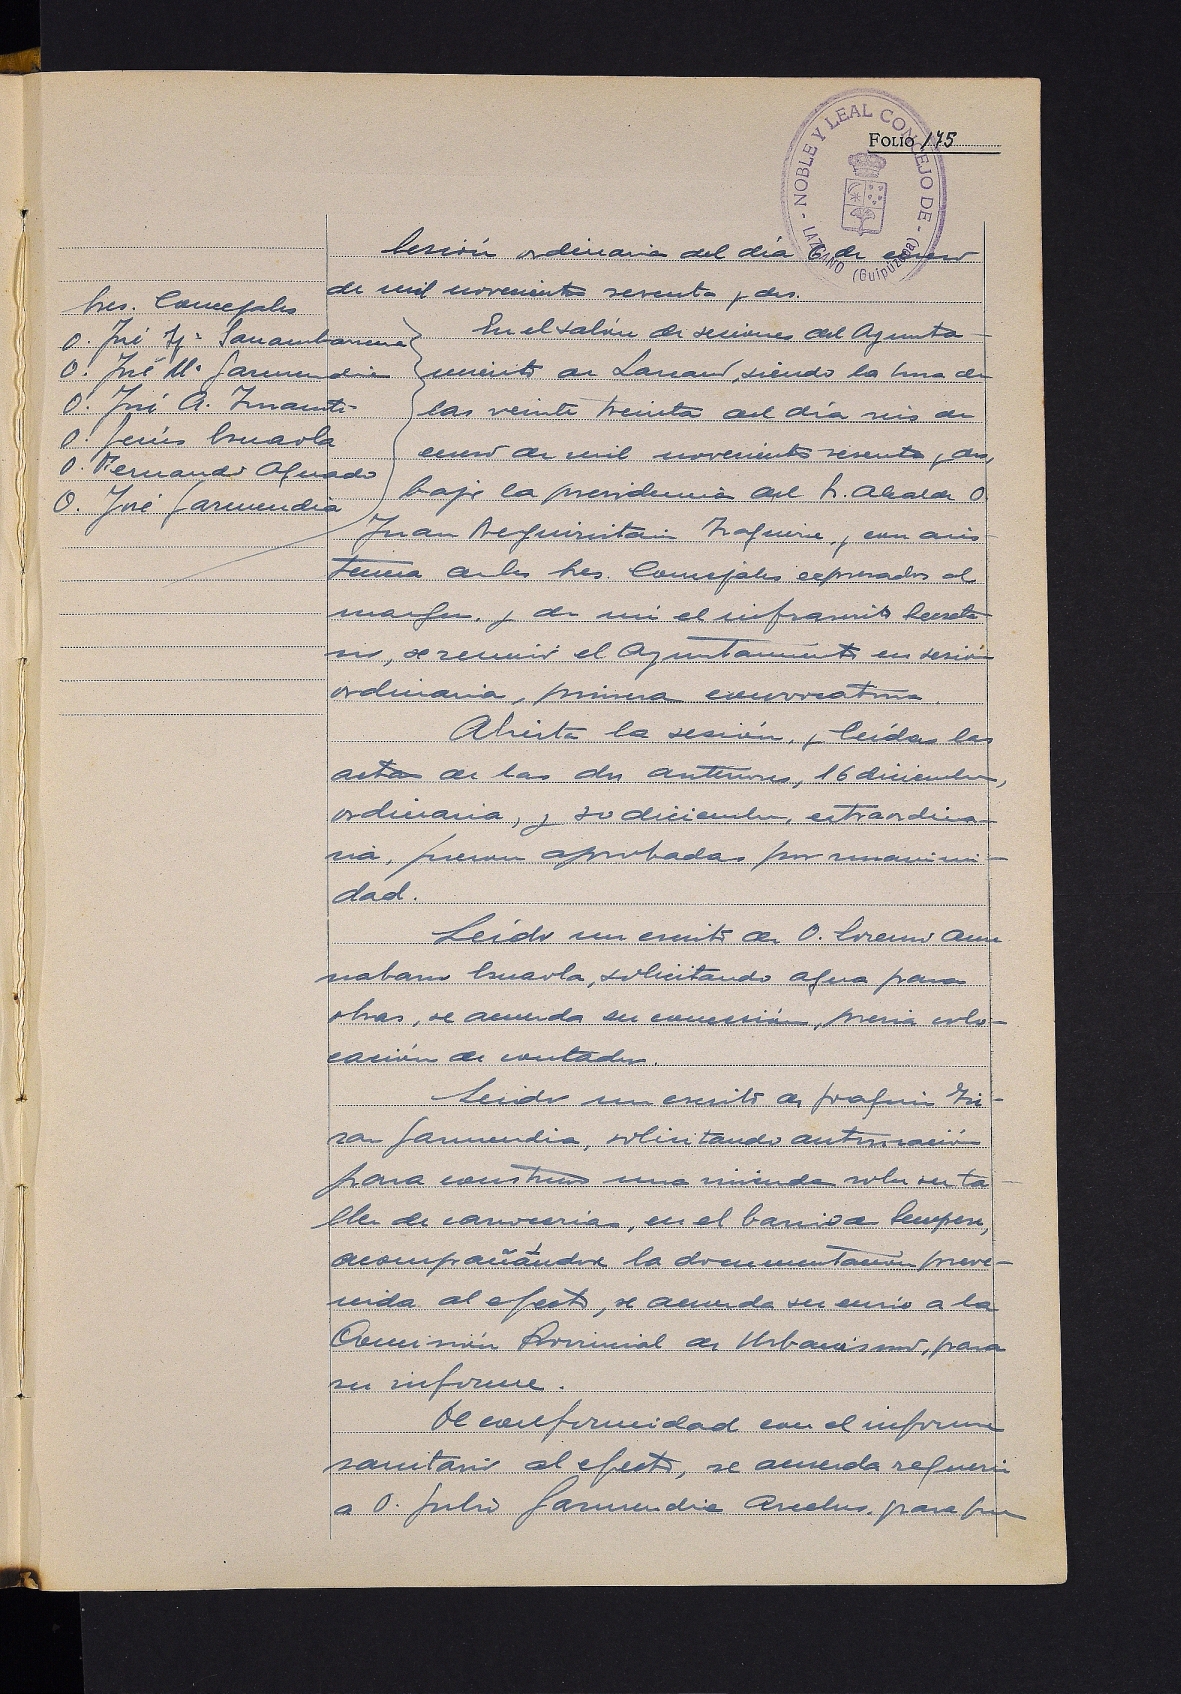 NOBLE Y LEAL CONCEJO DE
LAZCANO (Guipúzcoa)
FOLIO 175
Sesión ordinaria del día 6 de enero
de mil novecientos sesenta y dos.
Sres. Concejales
D. José Mª Garmendia
D. José A.
D. Jesús Esnaola
D. Fernando Aguado
D. José Garmendia
En el salón de sesiones del Ayunta-
miento de Lazcano, siendo la hora de
las veinte treinta del día seis de
enero de mil novecientos sesenta y dos,
bajo la presidencia del Sr. Alcalde D.
Juan Iraguirre, y con asis-
tencia de los Sres. Concejales expresados al
margen, y de mi el infrascrito Secreta-
rio, se reunió el Ayuntamiento en sesión
ordinaria, primera convocatoria.
Abierta la sesión, y leídas las
actas de las dos anteriores, 16 diciembre,
ordinaria, y 30 diciembre, extraordina-
ria, fueron aprobadas por unanimi-
dad.
Leído un escrito de D. Lorenzo
Esnaola, solicitando agua para
obras, se acuerda su concesión, previa colo-
cación de contador.
Leído un escrito de Joaquin
Garmendia, solicitando autorización
para construir una vivienda sobre su ta-
ller de carrocerias, en el barrio de Sempere,
acompañándose la documentación preve-
nida al efecto, se acuerda su envio a la
Comisión Provincial de Urbanismo, para
su informe.
De conformidad con el informe
sanitario al efecto, se acuerda requerir
a D. Julio Garmendia Arcelus, para que